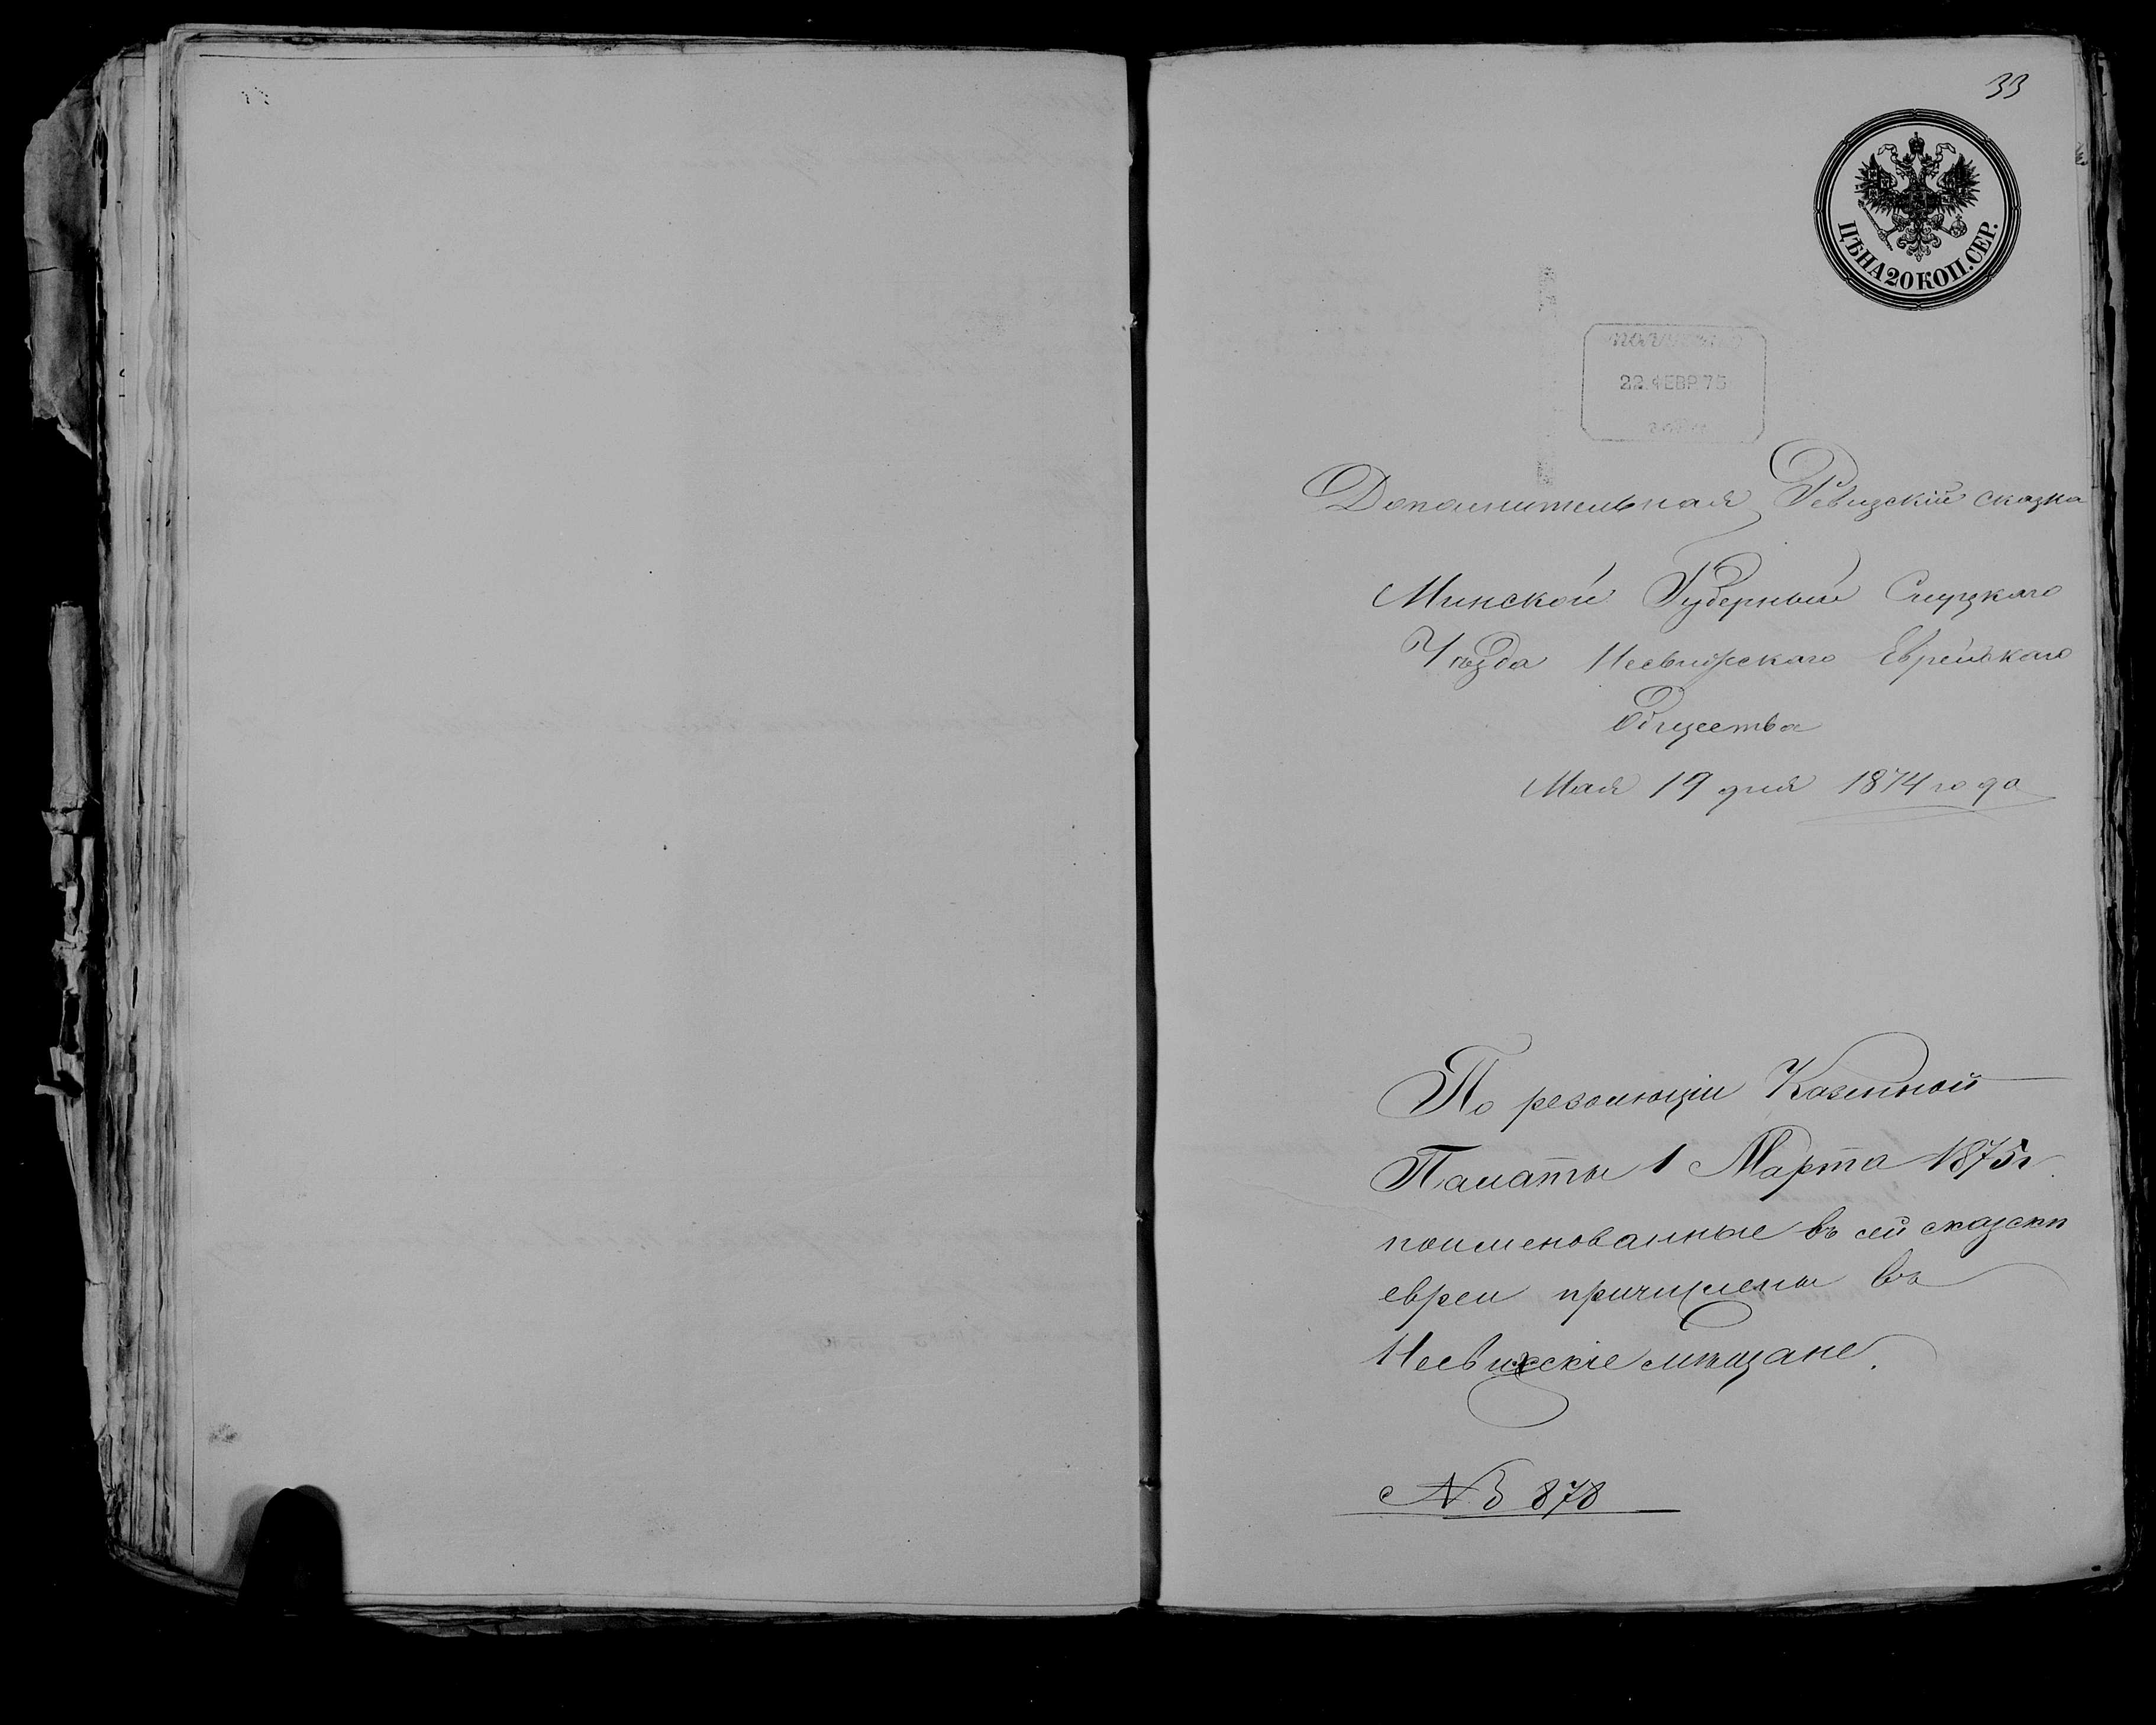 33
ЦѢНА 20 КОП. СЕР.
22 ФЕВР 75
Дополнительная Ревизскій сказка
Минской Губерный Слуцкаго
Уѣзда Несвижскаго Еврейскаго
Общества
Мая 19 дня 1874 года
По резолюціи Казенной
Палаты 1 Марта 1875 г.
поименованные въ сей сказскѣ
евреи причислены въ
Несвижскіе мѣщане.
№ 878